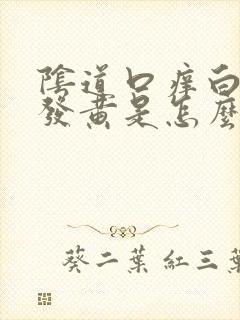 陰道口痒白
發黄是怎麽
葵二葉紅三葉